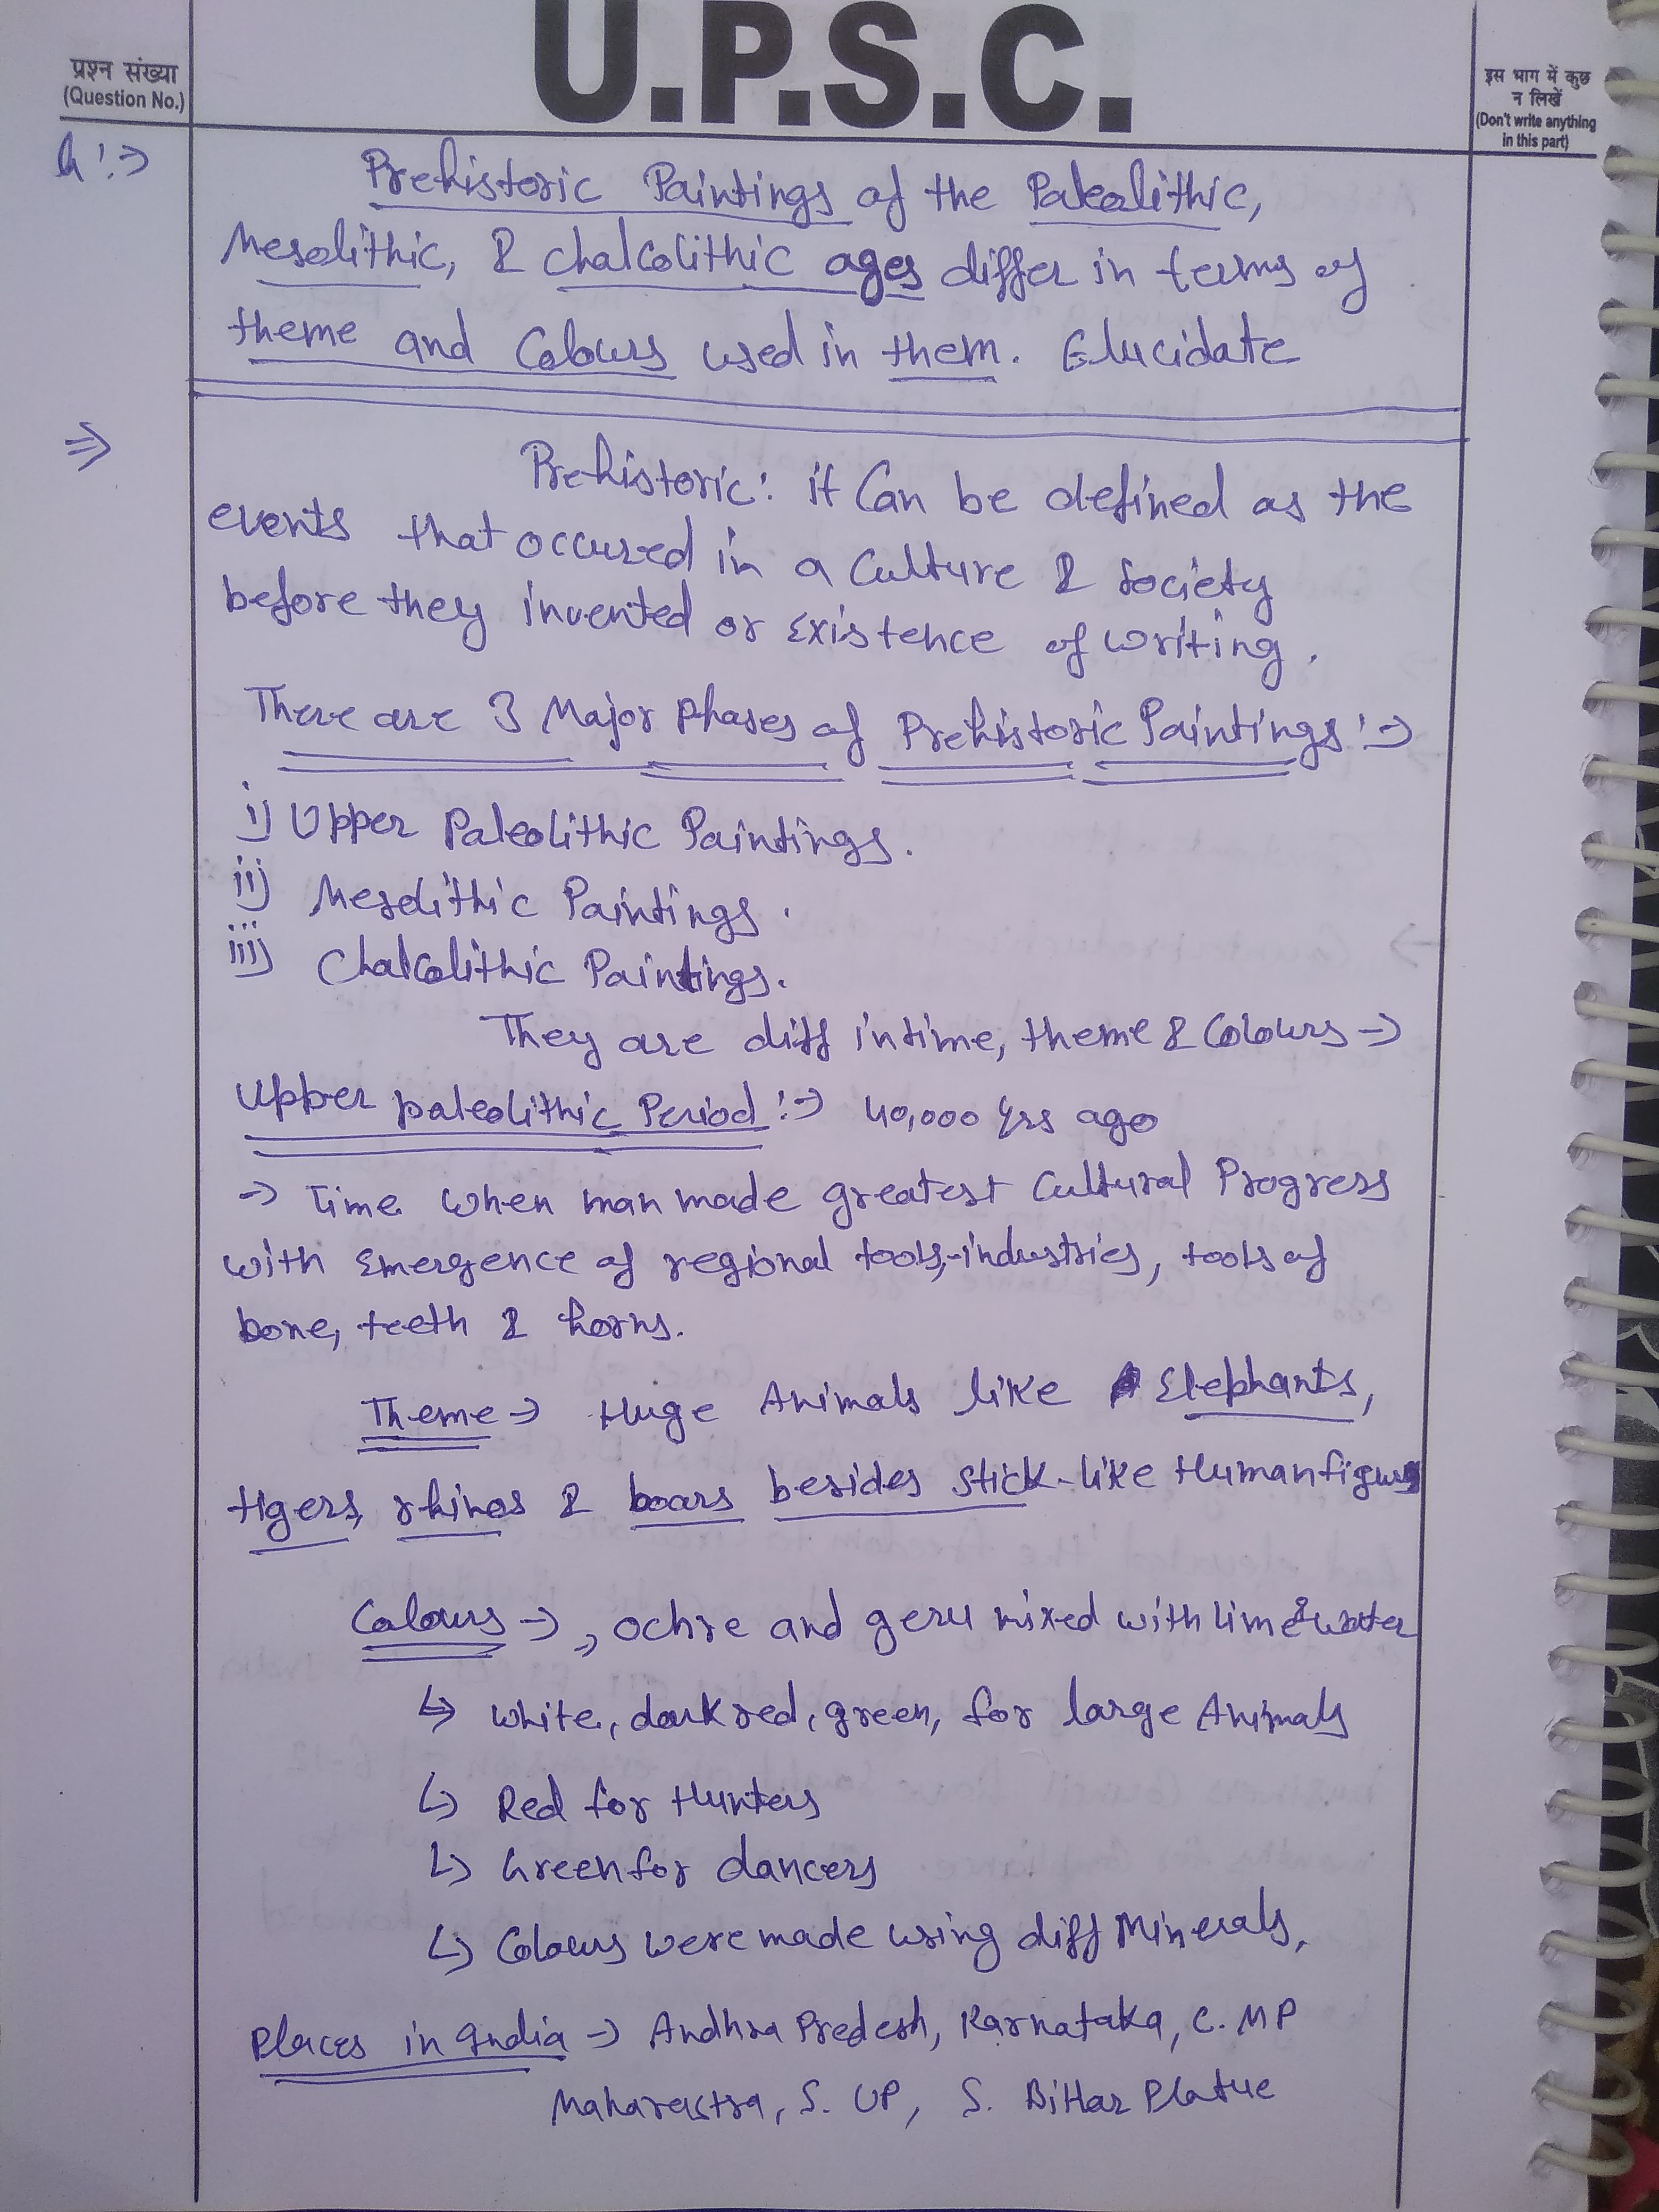 U.P.S.C.
प्रश्न संख्या
(Question No.)
इस भाग में कुछ
न लिखें
(Don't write anything
in this part)
Prehistoric Paintings of the Paleolithic,
Mesolithic, & chalcolithic ages differ in terms of
theme and Colours used in them. Elucidate
⇒ Prehistoric: it Can be defined as the
events that occured in a Culture & Society
before they invented or Existence of writing.
There are 3 Major Phases of Prehistoric Paintings :→
i) Upper Paleolithic Paintings.
ii) Mesolithic Paintings.
iii) Chalcolithic Paintings.
They are diff in time, theme & Colours →
Upper paleolithic Period :→ 40,000 yrs ago
→ Time when man made greatest Cultural Progress
with Emergence of regional tools,-industries, tools of
bone, teeth & horns.
Theme → Huge Animals like Elephants,
tigers, rhinos & boars besides stick-like Human figures
Colours → , ochre and geru mixed with lime & water
↳ white, dark red, green, for large Animals
↳ Red for Hunters
↳ Green for dancers
↳ Colours were made using diff Minerals,
Places in India → Andhra Predesh, Karnataka, C. MP
Maharastra, S. UP, S. Bihar Platue